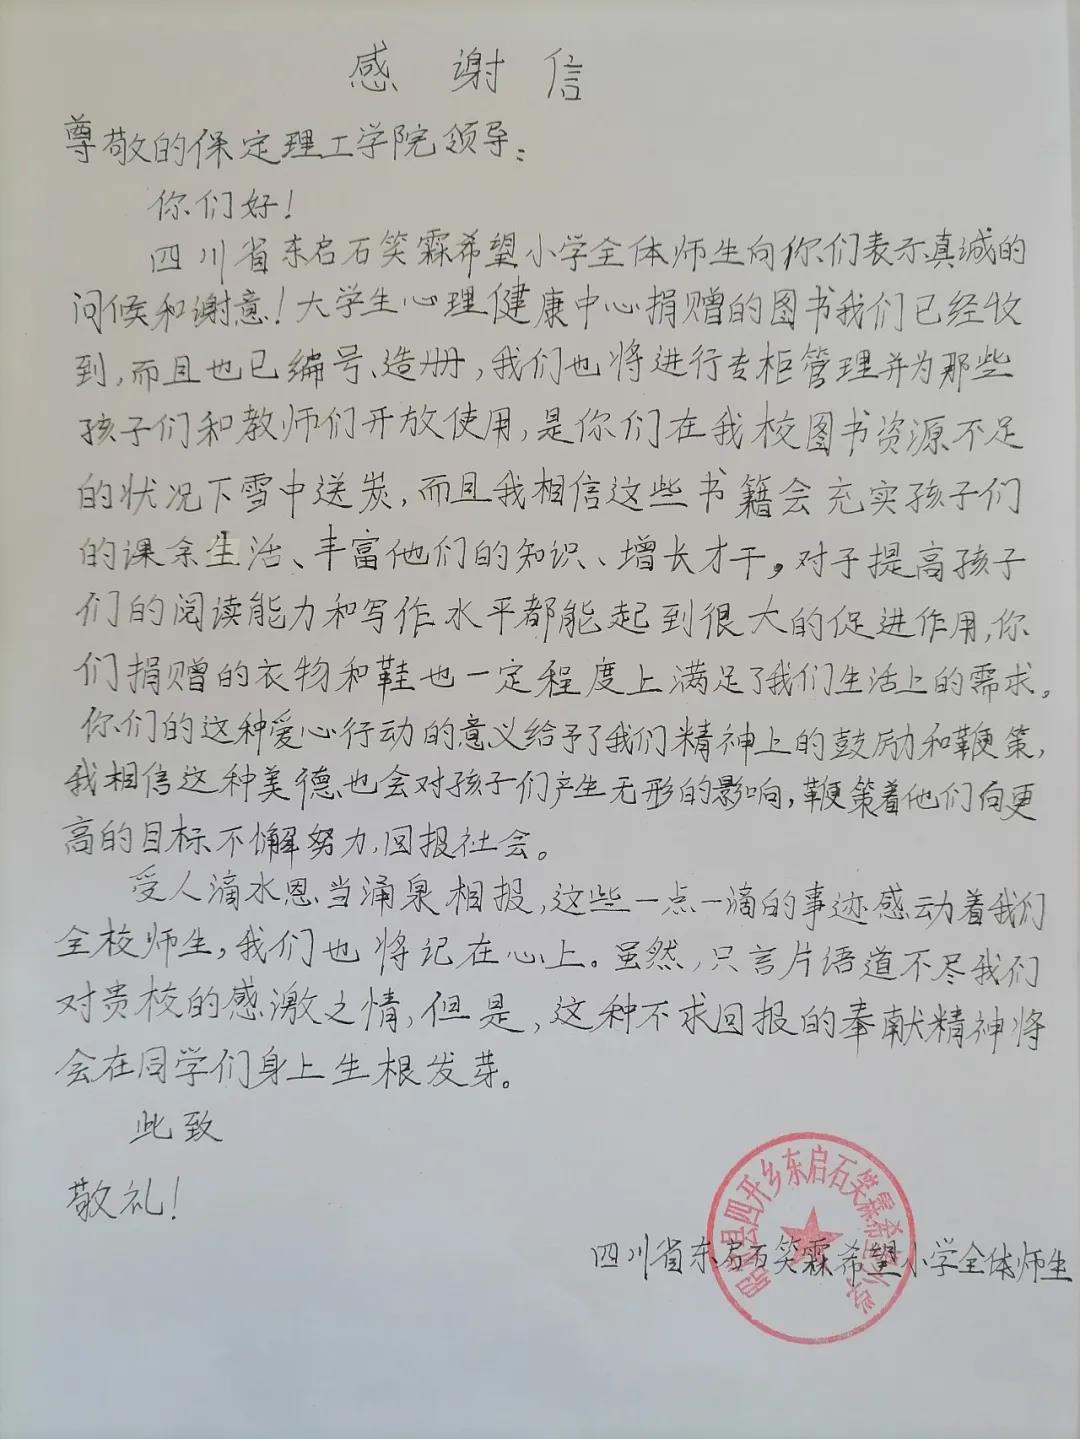 感谢信
尊敬的保定理工学院领导:
你们好!
四川省东启石笑霖希望小学全体师生向你们表示真诚的
问候和谢意!大学生心理健康中心捐赠的图书我们已经收
到,而且也已编号、造册,我们也将进行专柜管理并为那些
孩子们和教师们开放使用,是你们在我校图书资源不足
的状况下雪中送炭,而且我相信这些书籍会充实孩子们
的课余生活、丰富他们的知识、增长才干。对于提高孩子
们的阅读能力和写作水平都能起到很大的促进作用,你
们捐赠的衣物和鞋也一定程度上满足了我们生活上的需求。
你们的这种爱心行动的意义给予了我们精神上的鼓励和鞭策,
我相信这种美德也会对孩子们产生无形的影响,鞭策着他们向更
高的目标不懈努力,回报社会。
受人滴水恩当涌泉相报,这些一点一滴的事迹感动着我们
全校师生,我们也将记在心上。虽然,只言片语道不尽我们
对贵校的感激之情,但是,这种不求回报的奉献精神将
会在同学们身上生根发芽。
此致
敬礼!
四川省东启石笑霖希望小学全体师生
县四开乡东启石笑霖希望小学